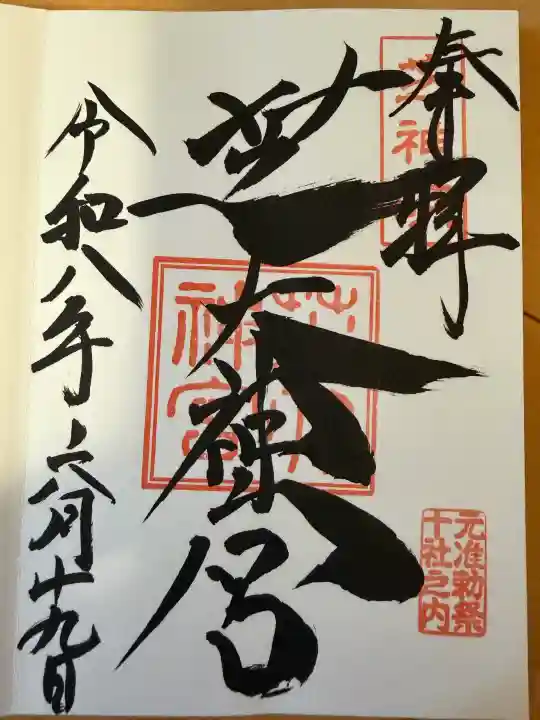 奉拝
芝大神宮
令和八年六月十九日
芝大
神宮
元准勅祭
十社之内